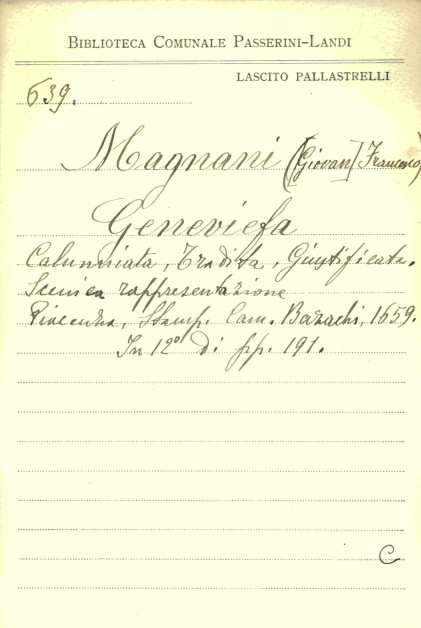 BIBLIOTECA COMUNALE PASSERINI-LANDI
LASCITO PALLASTRELLI
639.
Magnani ([Giovan] Francesco)
Geneviefa
Calunniata, Tradita, Giustificata.
Scenica rappresentazione
Piacenza, Stamp. Cam. Bazachi, 1659.
In 12º di pp. 191.
C